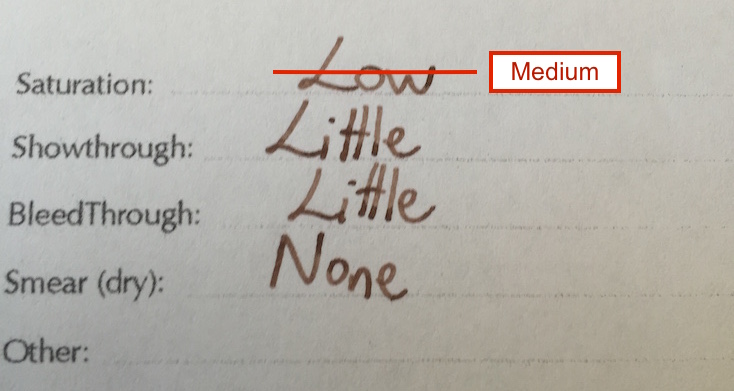 Saturation: Low Medium
Showthrough: Little
BleedThrough: Little
Smear (dry): None
Other: